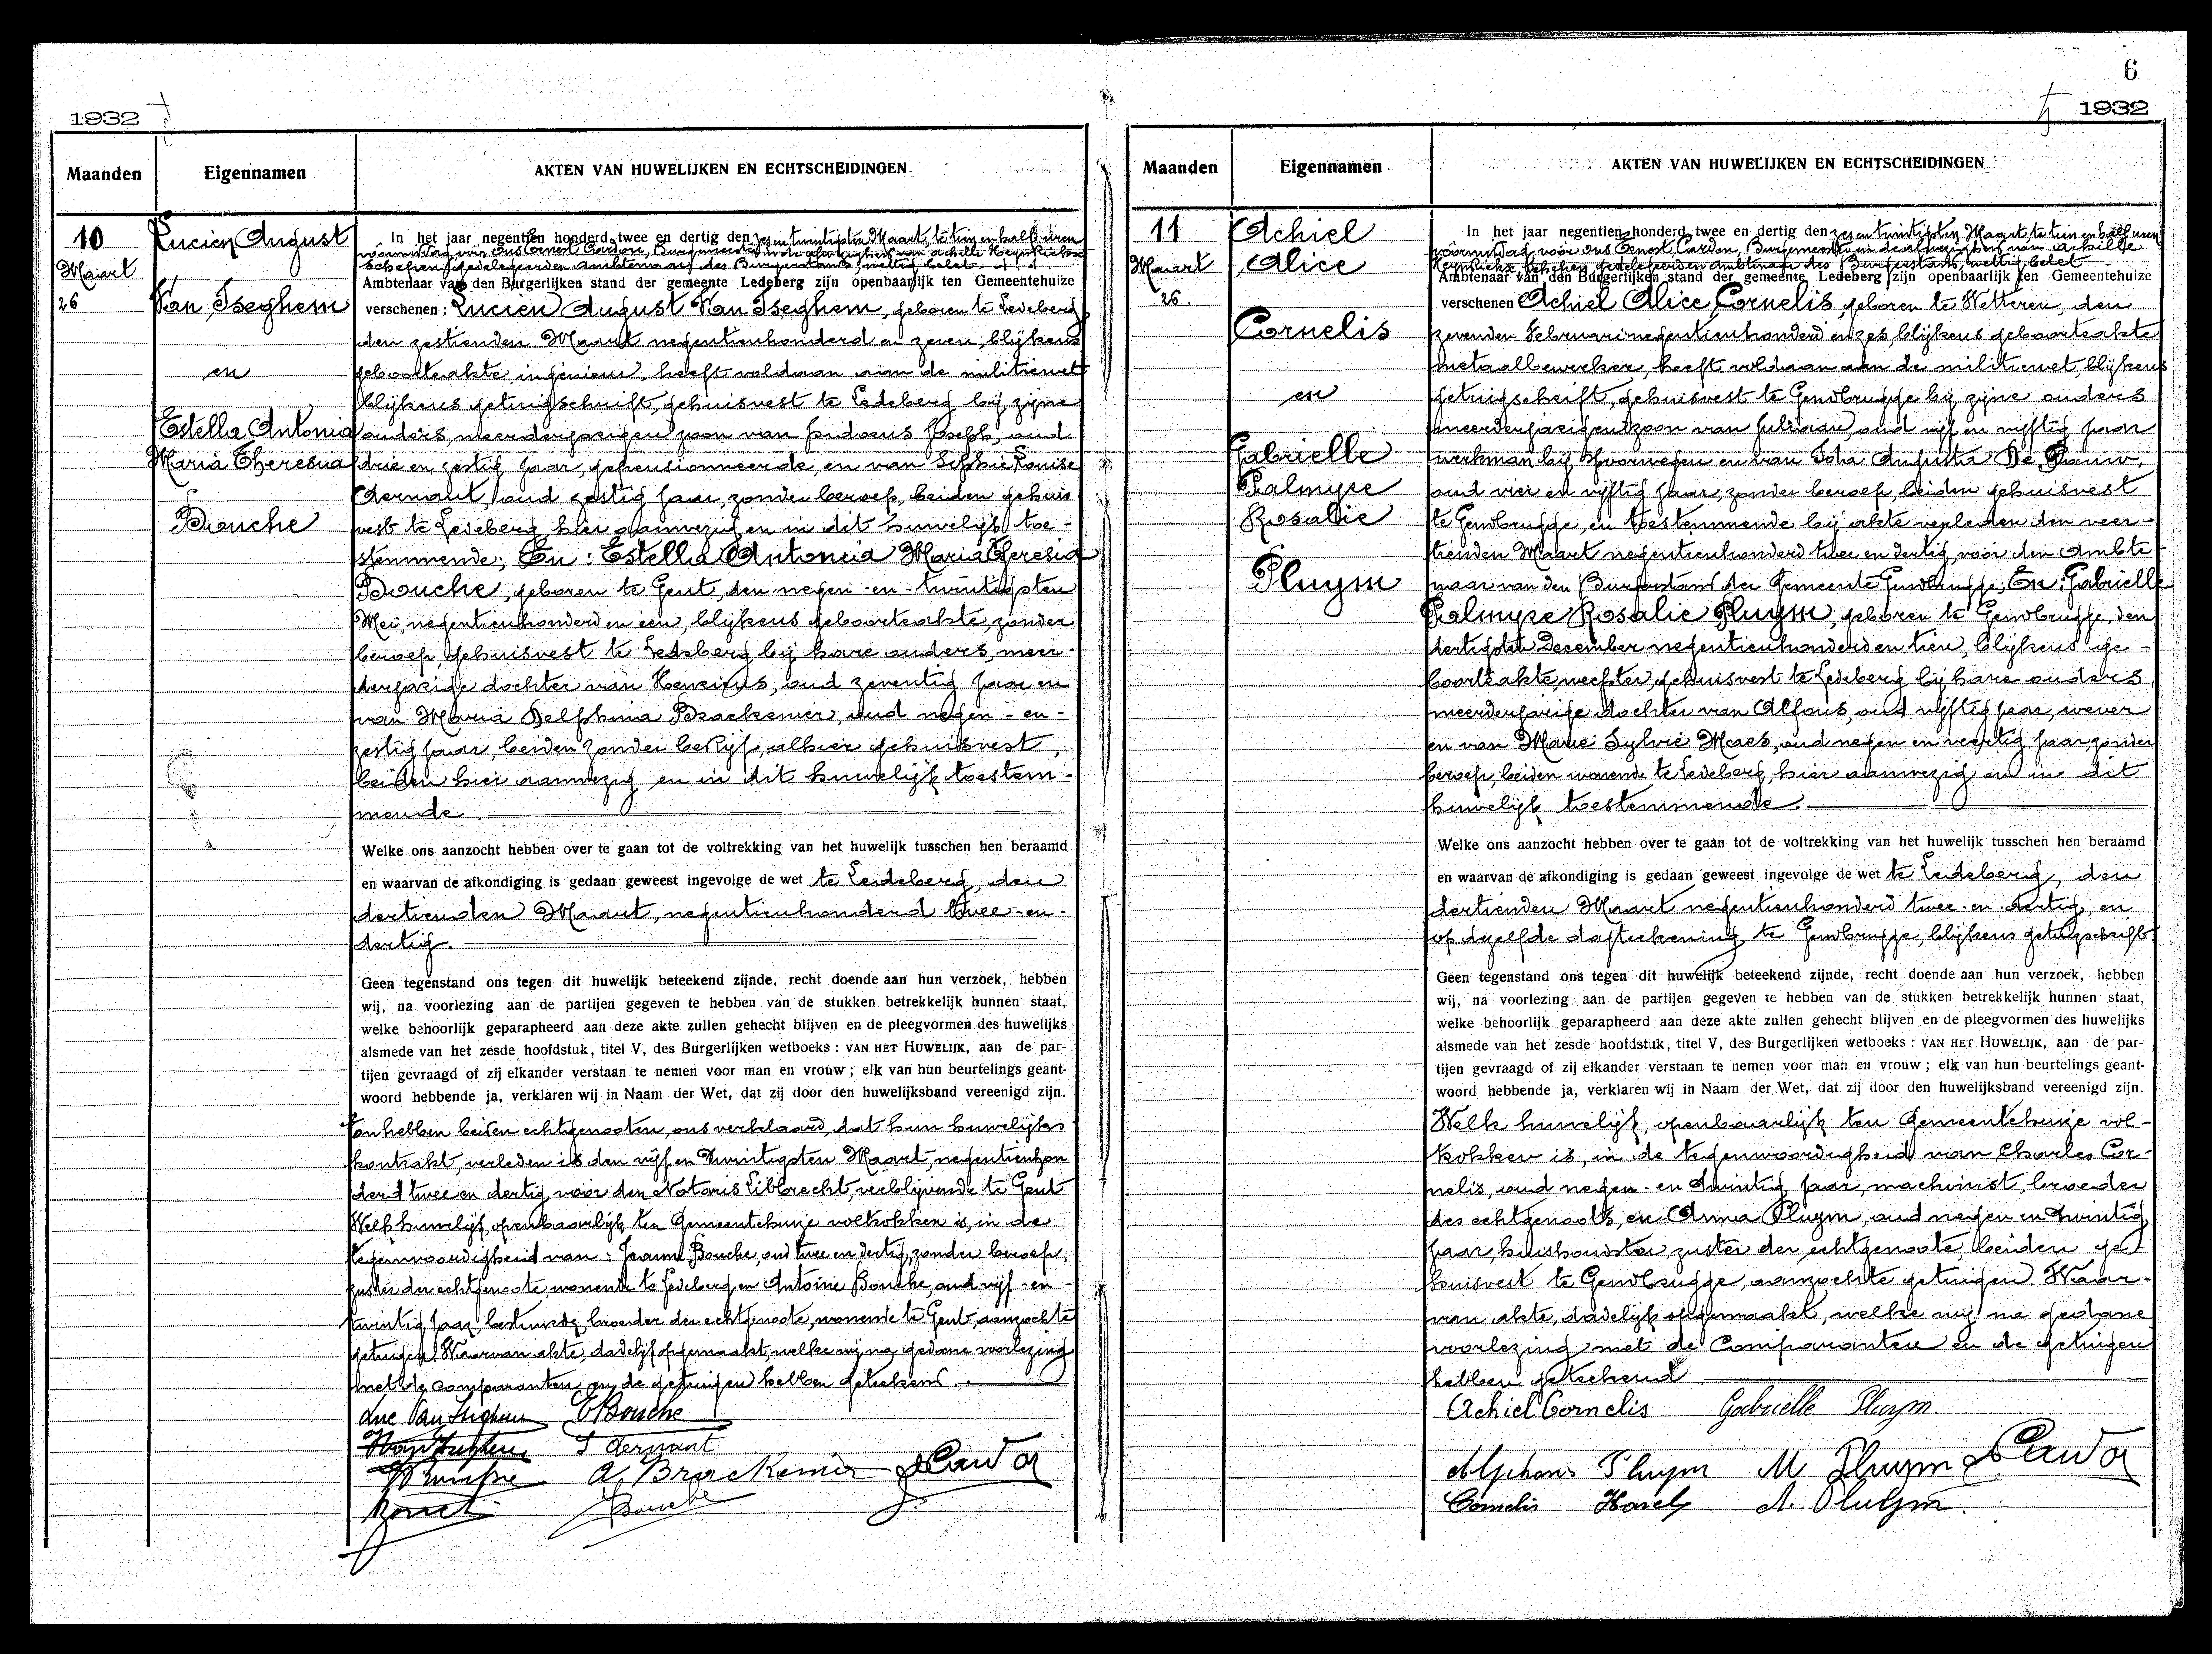 1932
Maanden
Eigennamen
AKTEN VAN HUWELIJKEN EN ECHTSCHEIDINGEN
10
Maart
26
Lucien August
Van Iseghem
en
Estella Antonia
Maria Theresia
Bouche
In het jaar negentien honderd twee en dertig den zes en twintigsten Maart, te tien en half uren
voormiddag vóór ons Ernest Cardon, Burgemeester in de afwezigheid van Achille Heynlickx
schepen gedelegeerden Ambtenaar des Burgerstands, wettig belet
Ambtenaar van den Burgerlijken stand der gemeente Ledeberg zijn openbaarlijk ten Gemeentehuize
verschenen : Lucien August Van Iseghem, geboren te Ledeberg
den zestienden Maart negentienhonderd en zeven, blijkens
geboorteakte, ingenieur, heeft voldaan aan de militiewet
blijkens getuigschrift, gehuisvest te Ledeberg bij zijne
ouders, meerderjarigen zoon van Isidorus Joseph, oud
drie en zestig jaar, gepensionneerde, en van Sophie Louise
Dernaut, oud zestig jaar, zonder beroep, beiden gehuis
vest te Ledeberg, hier aanwezig en in dit huwelijk toe-
stemmende; En : Estella Antonia Maria Theresia
Bouche, geboren te Gent, den negen-en-twintigsten
Mei, negentienhonderd en één, blijkens geboorteakte, zonder
beroep, gehuisvest te Ledeberg bij hare ouders, meer-
derjarige dochter van Henricus, oud zeventig jaar en
van Maria Delphina Brackenier, oud negen-en-
zestig jaar, beiden zonder bedrijf, alhier gehuisvest,
beiden hier aanwezig en in dit huwelijk toestem-
mende
Welke ons aanzocht hebben over te gaan tot de voltrekking van het huwelijk tusschen hen beraamd
en waarvan de afkondiging is gedaan geweest ingevolge de wet te Ledeberg, den
dertienden Maart, negentienhonderd twee-en-
dertig.
Geen tegenstand ons tegen dit huwelijk beteekend zijnde, recht doende aan hun verzoek, hebben
wij, na voorlezing aan de partijen gegeven te hebben van de stukken betrekkelijk hunnen staat,
welke behoorlijk geparapheerd aan deze akte zullen gehecht blijven en de pleegvormen des huwelijks
alsmede van het zesde hoofdstuk, titel V, des Burgerlijken wetboeks : VAN HET HUWELIJK, aan de par-
tijen gevraagd of zij elkander verstaan te nemen voor man en vrouw ; elk van hun beurtelings geant-
woord hebbende ja, verklaren wij in Naam der Wet, dat zij door den huwelijksband vereenigd zijn.
En hebben beiden echtgenooten, ons verklaard, dat hun huwelijks
kontrakt, verleden is den vijf en twintigsten Maart, negentienhon
derd twee en dertig, vóór den Notaris Libbrecht, verblijvende te Gent
Welk huwelijk, openbaarlijk ten Gemeentehuize voltrokken is, in de
tegenwoordigheid van : Jeanne Bouche, oud twee en dertig, zonder beroep,
zuster der echtgenoote, wonende te Ledeberg en Antoine Bouche, oud vijf-en-
twintig jaar, broeder der echtgenoote, wonende te Gent, aanzochte
getuigen. Waarvan akte, dadelijk opgemaakt, welke wij na gedane voorlezing
met de comparanten en de getuigen hebben geteekend.
Luc Van Iseghem E Bouche
S Dernaut
A. Brackenier
Bouche
1932
6
Maanden
Eigennamen
AKTEN VAN HUWELIJKEN EN ECHTSCHEIDINGEN
11
Maart
26.
Achiel
Alice
Cornelis
en
Gabrielle
Palmyre
Rosalie
Pluym
In het jaar negentien honderd twee en dertig den zes en twintigsten Maart, te tien en half uren
voormiddag, vóór ons Ernest Cardon, Burgemeester in de afwezigheid van Achille
Heynlickx schepen gedelegeerden Ambtenaar des Burgerstands, wettig belet
Ambtenaar van den Burgerlijken stand der gemeente Ledeberg zijn openbaarlijk ten Gemeentehuize
verschenen Achiel Alice Cornelis, geboren te Wetteren, den
zevenden Februari negentienhonderd en zes, blijkens geboorteakte
metaalbewerker, heeft voldaan aan de militiewet, blijkens
getuigschrift, gehuisvest te Gendbrugge bij zijne ouders
meerderjarigen zoon van Juliaan, oud vijf en vijftig jaar
werkman bij spoorwegen en van Augusta De Pauw,
oud vier en vijftig jaar, zonder beroep, beiden gehuisvest
te Gendbrugge, en toestemmende bij akte verleden den veer-
tienden Maart negentienhonderd twee en dertig, vóór den Ambte
naar van den Burgerstand der Gemeente Gendbrugge; En : Gabrielle
Palmyre Rosalie Pluym, geboren te Gendbrugge, den
dertigsten December negentienhonderd en tien, blijkens ge-
boorteakte, weefster, gehuisvest te Ledeberg bij hare ouders,
meerderjarige dochter van Alfons, oud vijftig jaar, wever
en van Marie Sylvie Maes, oud negen en veertig jaar, zonder
beroep, beiden wonende te Ledeberg, hier aanwezig en in dit
huwelijk toestemmende.
Welke ons aanzocht hebben over te gaan tot de voltrekking van het huwelijk tusschen hen beraamd
en waarvan de afkondiging is gedaan geweest ingevolge de wet te Ledeberg, den
dertienden Maart negentienhonderd twee-en-dertig, en
op dezelfde dagteekening te Gendbrugge, blijkens getuigschrift
Geen tegenstand ons tegen dit huwelijk beteekend zijnde, recht doende aan hun verzoek, hebben
wij, na voorlezing aan de partijen gegeven te hebben van de stukken betrekkelijk hunnen staat,
welke behoorlijk geparapheerd aan deze akte zullen gehecht blijven en de pleegvormen des huwelijks
alsmede van het zesde hoofdstuk, titel V, des Burgerlijken wetboeks : VAN HET HUWELIJK, aan de par-
tijen gevraagd of zij elkander verstaan te nemen voor man en vrouw ; elk van hun beurtelings geant-
woord hebbende ja, verklaren wij in Naam der Wet, dat zij door den huwelijksband vereenigd zijn.
Welk huwelijk, openbaarlijk ten Gemeentehuize vol-
trokken is, in de tegenwoordigheid van Charles Cor-
nelis, oud negen-en-twintig jaar, machinist, broeder
des echtgenoots, en Anna Pluym, oud negen en twintig
jaar, huishoudster, zuster der echtgenoote, beiden ge-
huisvest te Gendbrugge, aanzochte getuigen. Waar-
van akte, dadelijk opgemaakt, welke wij na gedane
voorlezing met de Comparanten en de getuigen
hebben geteekend.
Achiel Cornelis Gabrielle Pluym
Alphons Pluym M Pluym
Cornelis Karel A. Pluym.